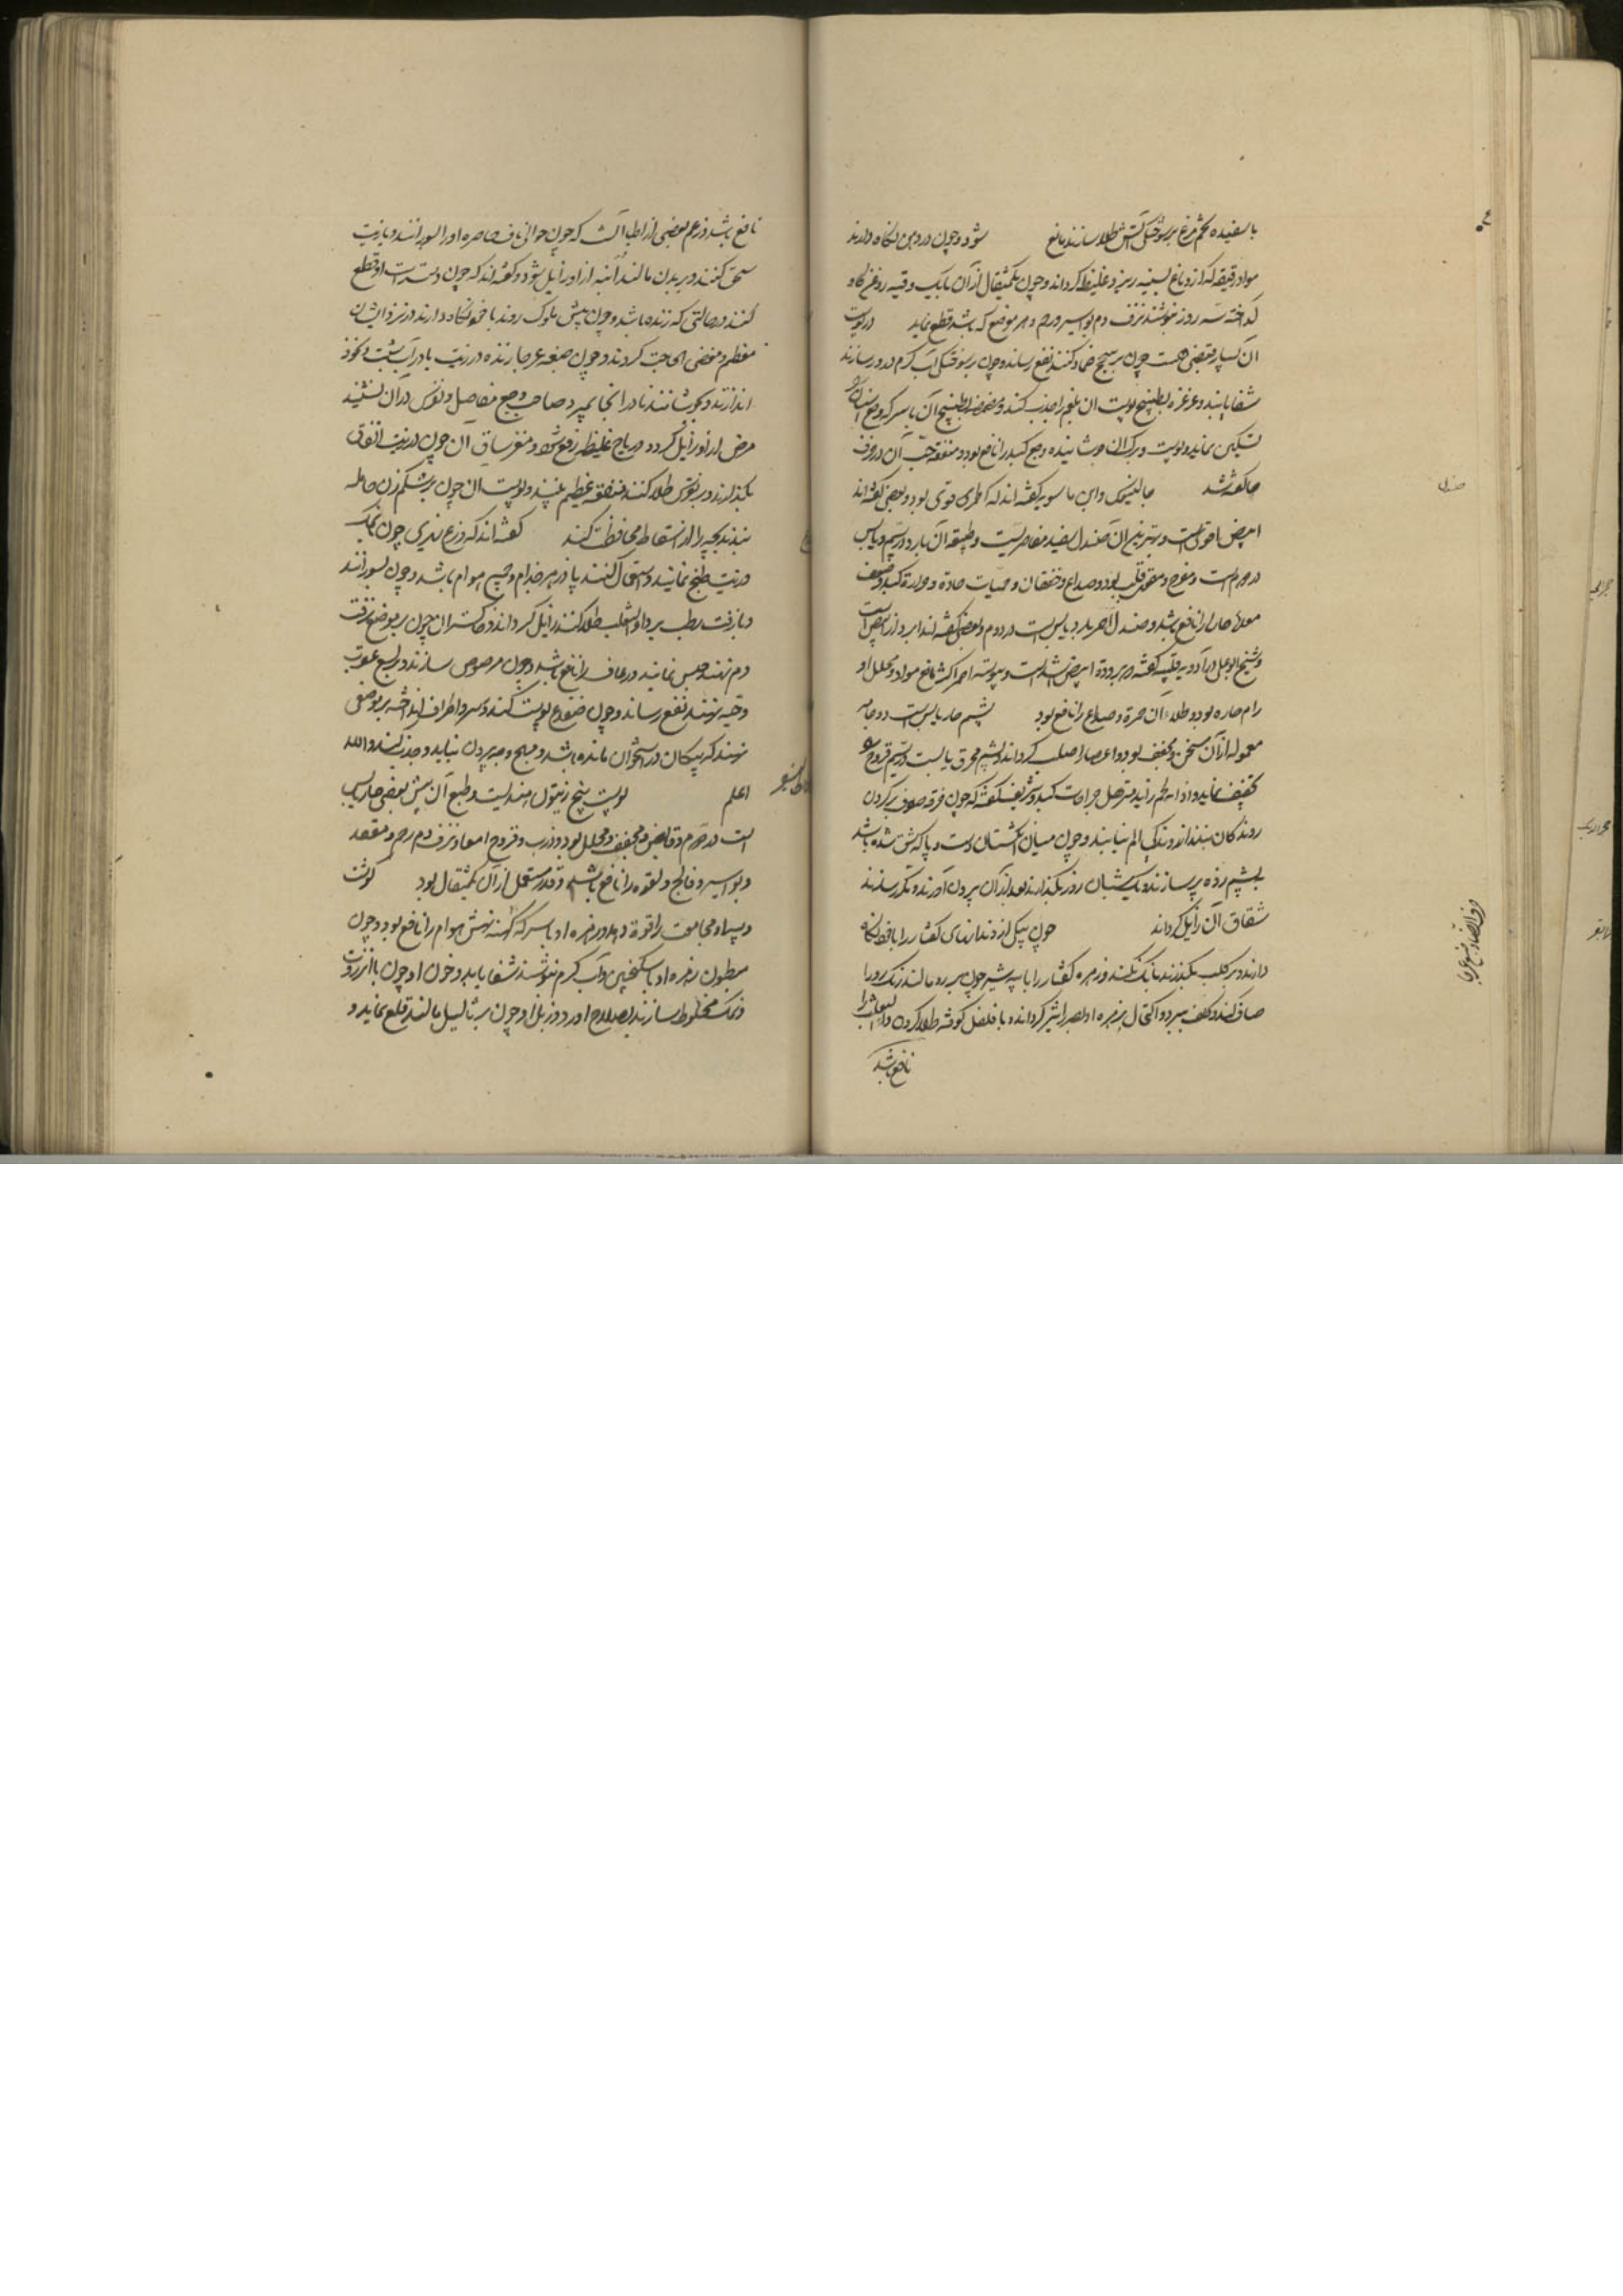 با سفیده تخم مرغ بر سوختگی آتش طلا سازند نافع شود و چون در دهن نگاه دارند
مواد رقیقه که از دماغ بسینه ریزد غلیظ گرداند و چون یکمثقال از آن با یک وقیه روغن گاو
گداخته سه روز نوشند نزف دم بواسیر و رحم و هر موضع که باشد قطع نماید در پوست
آن بسیار قبضی هست چون بر سحج ضماد کنند نفع رساند و چون بر سوختگی آب گرم ذرور سازند
شفا یابند و غرغره بطبیخ پوست آن بلغم را جذب کند و مضمضه بطبیخ آن با سرکه وجع اسنان را
تسکین نماید و پوست و برک آن جوشانیده وجع کبد را نافع بود و منفعت حب آن در حرف
حا گفته شد جالینوس و ابن ماسویه گفته اند که احمر قوی بود و بعضی گفته اند
ابیض اقوی است و بهترین آن صندل سفید مقاصریست و طبیعت آن بارد در سیم و یابس
در دوم است و مفرح و مقوی قلب بود و صداع و خفقان و حمیات حاده و حرارت کبد و ضعف
معده حار را نافع باشد و صندل احمر بارد یابس است در دوم و بعضی گفته اند ابرد از ابیض است
و شیخ ابوعلی در ادویه قلبیه گفته در برودت ابیض اشد است و پیوسته احمر اکثر مانع مواد و محلل او
رام حاره بود و طلاء آن حمرة و صداع را نافع بود پشم حار یابس است و جامه
معموله از آن مسخن و مجفف بود و اعصا را صلب گرداند و پشم محرق یابست در سیم قروح را
تجفیف نماید و اذابه لحم زاید در جراحات کند و شریف گفته که چون خرقه صوف بر گردن
روندگان بندند از ماندگی الم نیابند و چون میان انگشتان دست و پا که شق شده باشد
بپشم زده پر سازند و یک شبان روز بگذارند بعد از آن بیرون آورند و مکرر سازند
شقاق آن زایل گرداند چون یکی از دندانهای کفتار را با خود نگاه
دارند و بر کلب بگذرند بانک نکند و زهره کفتار را با پیه شیر چون بر رو مالند رنک رو را
صاف کند و کلف ببرد و اکتحال بزهره او بصر را تیز گرداند و با فلفل کوفته طلا کردن داء الثعلب را
نافع باشد
صندل
نافع باشد و زعم بعضی از اطبا آنست که چون حوالی ناف و خاصره او را بسوزانند و با زیت
سحق کنند و بر بدن مالند ابنه از او زایل شود و گفته اند که چون دست راست او قطع
کنند در حالتی که زنده باشد و چون پیش ملوک روند با خود نگاه دارند در نزد ایشان
معظم و مقضی الحاجت گردند و چون ضبعه عرجا زنده در زیت یا در آب شبت و نخود
اندازند و بجوشانند تا در آنجا بمیرد و صاحب وجع مفاصل و نقرس در آن نشیند
مرض از او زایل گردد و ریاح غلیظه رفع شود و مغز ساق آن چون در زیت انفاق
بگذارند و بر نقرس طلا کنند منفعت عظیم بیند و پوست آن چون بر شکم زن حامله
بندند بچه را از اسقاط محافظت کند گفته اند که وزغ نهری چون بنمک
و زیت طبخ نمایند و استعمال کنند پادزهر جذام و جمیع هوام باشد و چون بسوزانند
و با زفت رطب بر داء الثعلب طلا کنند زایل گرداند و خاکستر آن چون بر موضع نزف
دم نهند حبس نماید و رعاف را نافع باشد و چون مرضوض سازند و بر لسع عقرب
و حیه نهند نفع رساند و چون ضفدع پوست کنده سر و اطراف انداخته بر موضعی
نهند که پیکان در استخوان مانده باشد و بهیچ وجه بیرون نیاید جذب کند و الله
اعلم پوست بیخ زیتون هندیست و طبع آن پیش بعضی حار یابس
است در دوم و قابض و مجفف و محلل بود و ذرب و قروح امعا و نزف دم رحم و مقعد
و بواسیر و فالج و لقوه را نافع باشد و قدر مستعمل از آن یکمثقال بود گوشت
و پیه او مجامعت را قوة دهد و زهره او با سرکه کهنه نهش هوام را نافع بود و چون
مبطون زهره او با سکنجبین و آب گرم نوشند شفا یابد و خون او چون با انزروت
و نمک مخلوط سازند بصلاح آورد و زبل او چون بر ثالیل مالند قلع نماید و